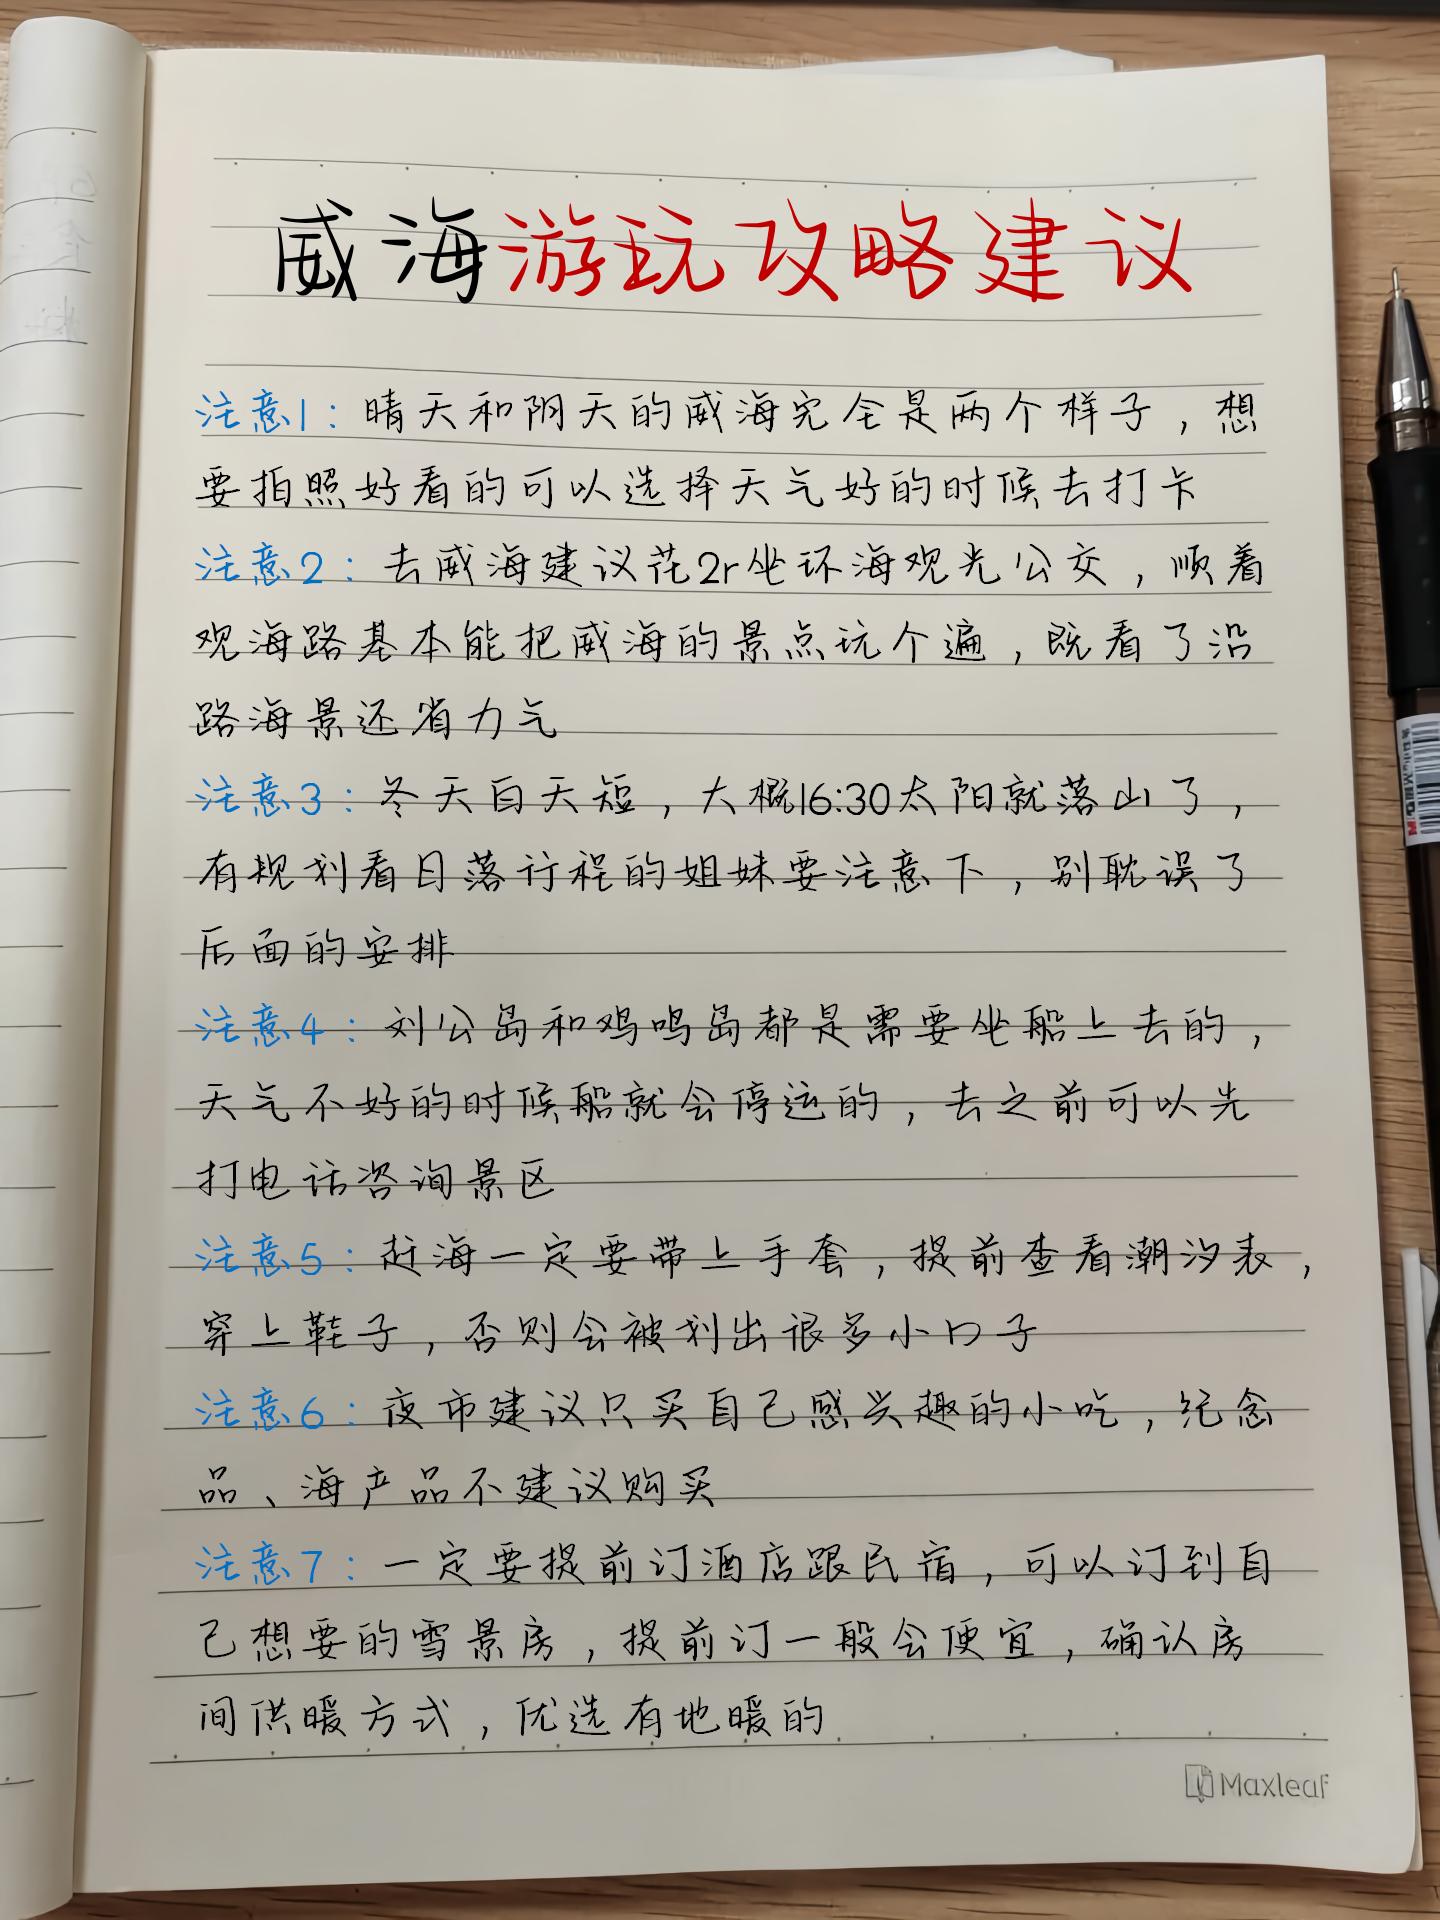 威海游玩攻略建议
注意1：晴天和阴天的威海完全是两个样子，想
要拍照好看的可以选择天气好的时候去打卡
注意2：去威海建议花2r坐环海观光公交，顺着
观海路基本能把威海的景点玩个遍，既看了沿
路海景还省力气
注意3：冬天白天短，大概16:30太阳就落山了，
有规划看日落行程的姐妹要注意下，别耽误了
后面的安排
注意4：刘公岛和鸡鸣岛都是需要坐船上去的，
天气不好的时候船就会停运的，去之前可以先
打电话咨询景区
注意5：赶海一定要带上手套，提前查看潮汐表，
穿上鞋子，否则会被划出很多小口子
注意6：夜市建议只买自己感兴趣的小吃，纪念
品、海产品不建议购买
注意7：一定要提前订酒店跟民宿，可以订到自
己想要的雪景房，提前订一般会便宜，确认房
间供暖方式，优选有地暖的
Maxleaf